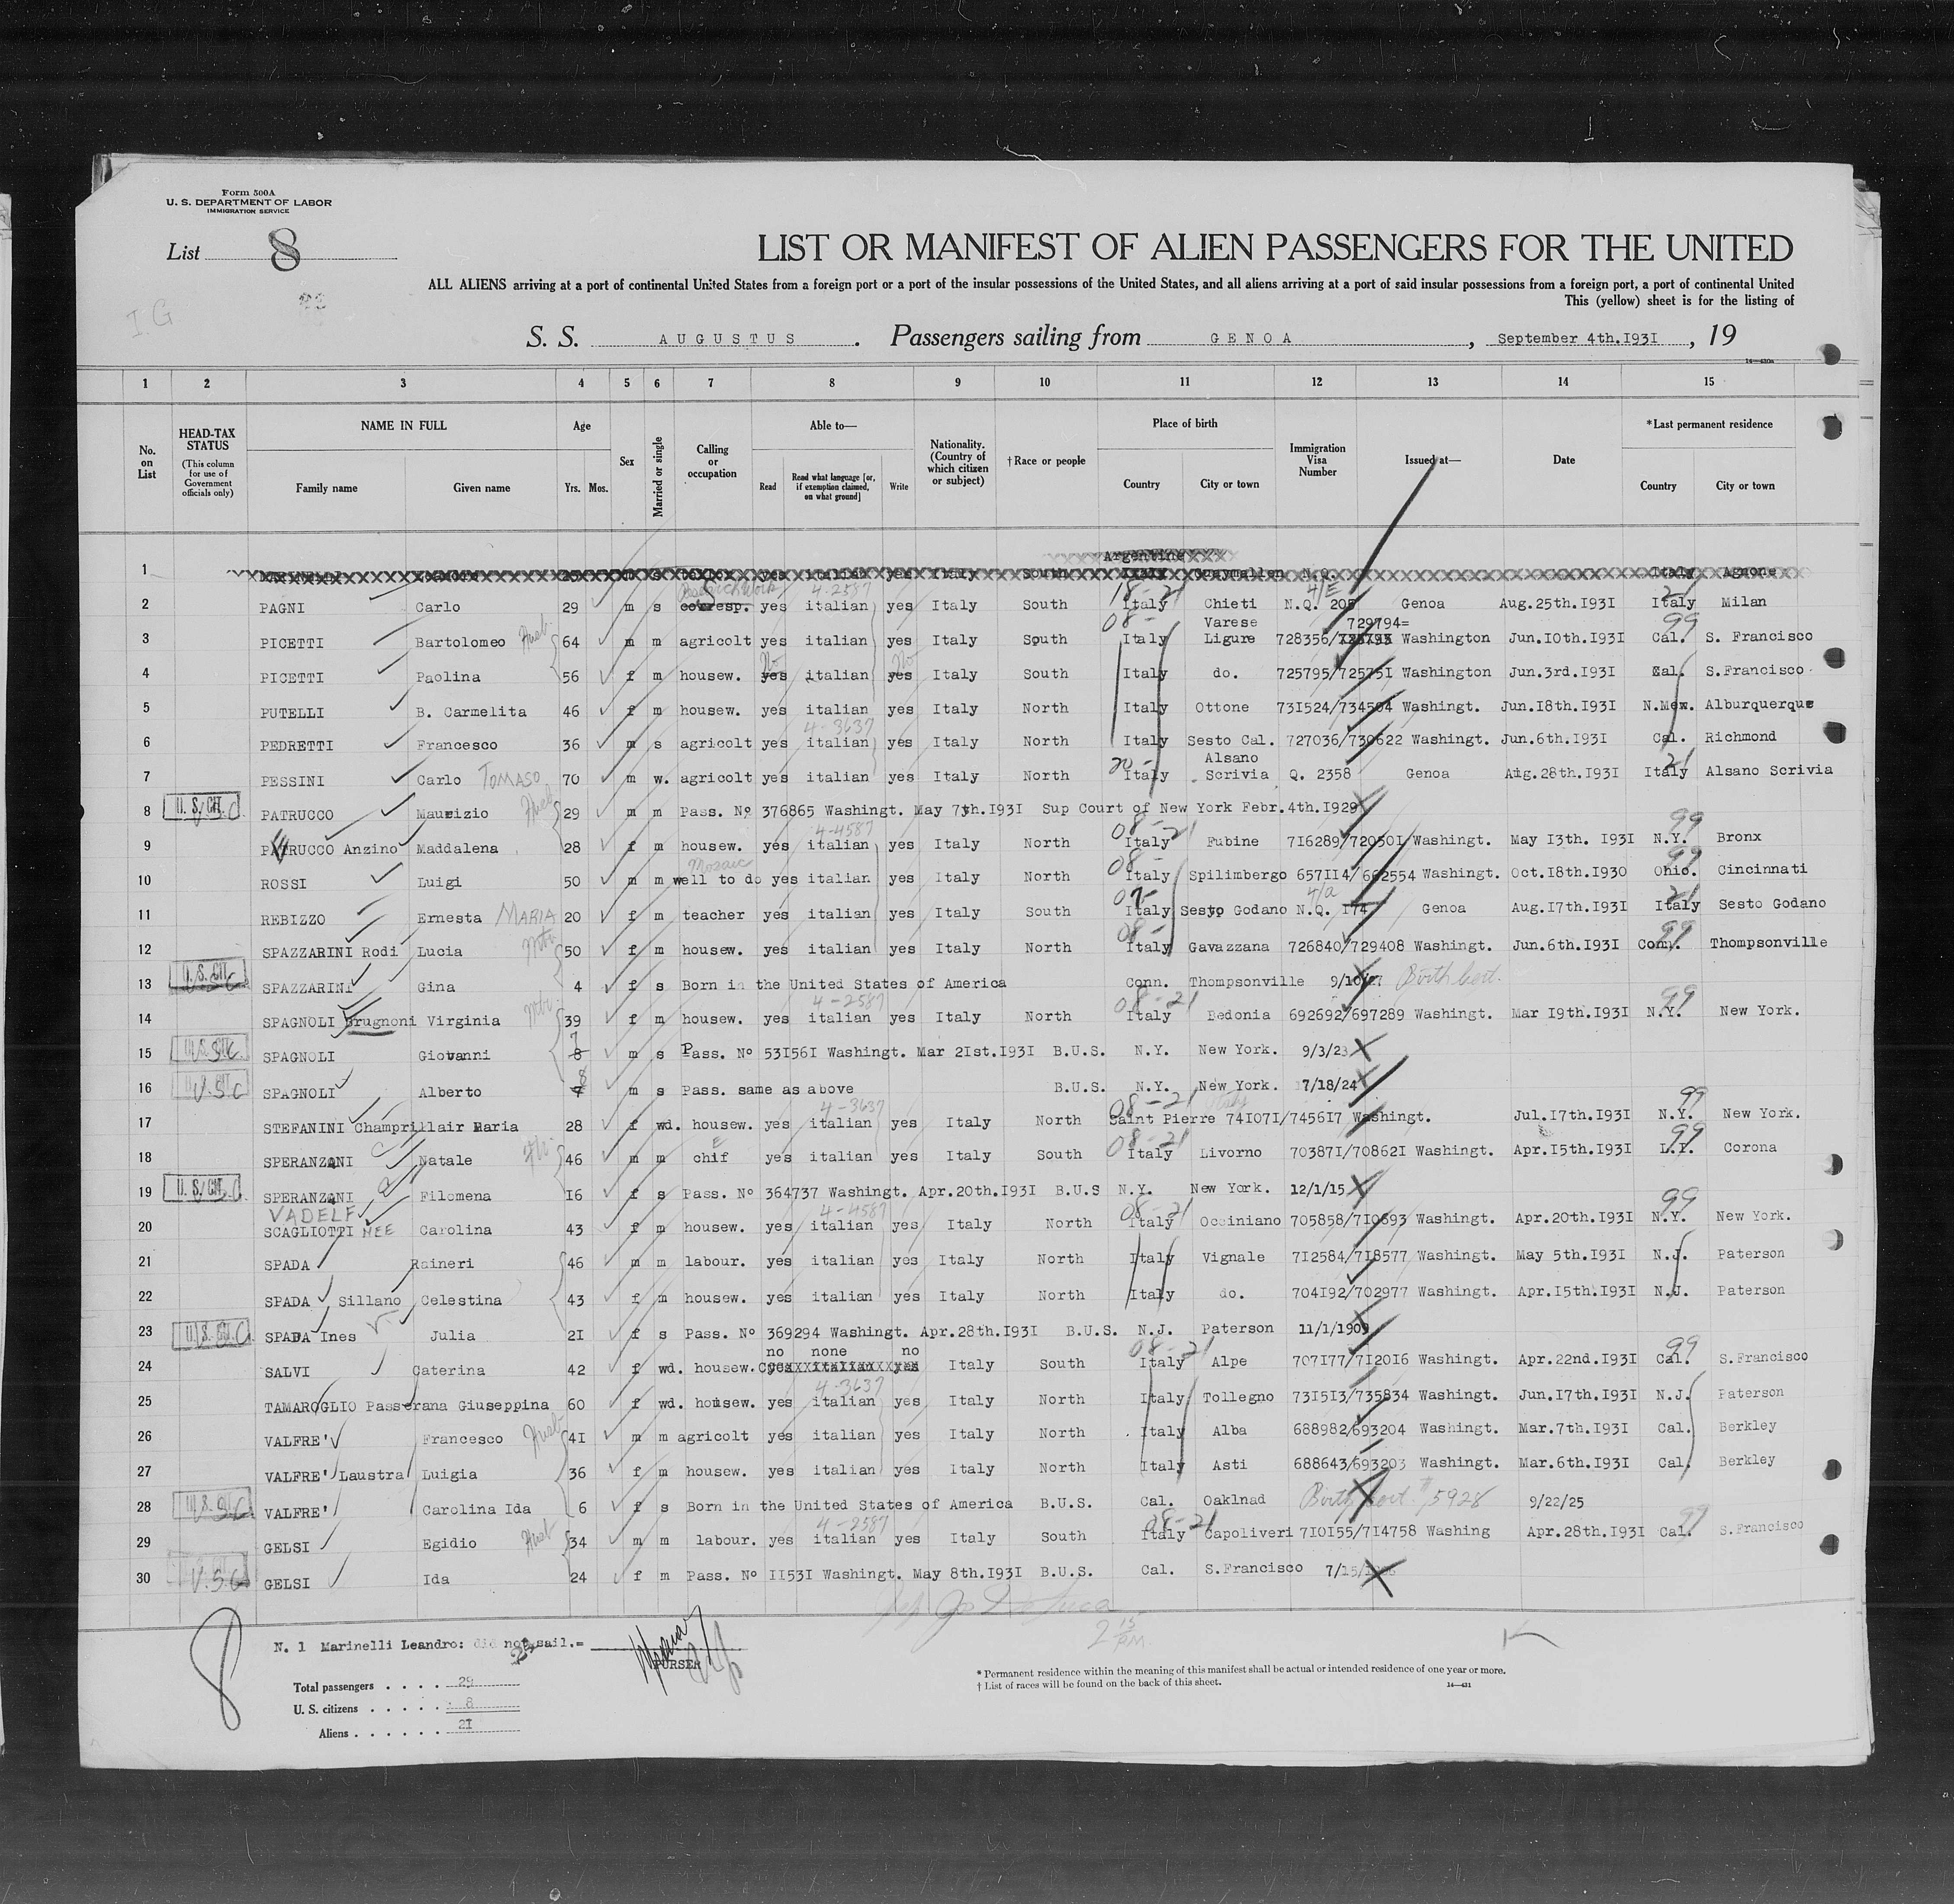 Form 500A
U. S. DEPARTMENT OF LABOR
IMMIGRATION SERVICE
List 8
LIST OR MANIFEST OF ALIEN PASSENGERS FOR THE UNITED
ALL ALIENS arriving at a port of continental United States from a foreign port or a port of the insular possessions of the United States, and all aliens arriving at a port of said insular possessions from a foreign port, a port of continental United
This (yellow) sheet is for the listing of
I.G
S. S. AUGUSTUS. Passengers sailing from GENOA, September 4th.I93I, 19
1 2 3 4 5 6 7 8 9 10 11 12 13 14 15
No. on List
HEAD-TAX STATUS (This column for use of Government officials only)
NAME IN FULL Family name Given name
Age Yrs. Mos.
Sex
Married or single
Calling or occupation
Able to— Read Read what language [or, if exemption claimed, on what ground] Write
Nationality. (Country of which citizen or subject)
†Race or people
Place of birth Country City or town
Immigration Visa Number
Issued at—
Date
*Last permanent residence Country City or town
Argentine
1 m s yes italian yes Italy South Italy N.Q. Italy Agnone
4-2587 4/E 18-21 21
2 PAGNI Carlo 29 m s corresp. yes italian yes Italy South Italy Chieti N.Q. 205 Genoa Aug.25th.I93I Italy Milan
08- Varese 729794= 99
3 PICETTI Bartolomeo Husb 64 m m agricolt yes italian yes Italy South Italy Ligure 728356/ Washington Jun.I0th.I93I Cal. S. Francisco
No No
4 PICETTI Paolina 56 f m housew. yes italian yes Italy South Italy do. 725795/72575I Washington Jun.3rd.I93I Cal. S.Francisco
5 PUTELLI B. Carmelita 46 f m housew. yes italian yes Italy North Italy Ottone 73I524/734504 Washingt. Jun.I8th.I93I N.Mex. Alburquerque
4-3637
6 PEDRETTI Francesco 36 m s agricolt yes italian yes Italy North Italy Sesto Cal. 727036/730622 Washingt. Jun.6th.I93I Cal. Richmond
20- Alsano 21
7 PESSINI Carlo TOMASO 70 m w. agricolt yes italian yes Italy North Italy Scrivia Q. 2358 Genoa Aug.28th.I93I Italy Alsano Scrivia
8 U. S. CIT. PATRUCCO Maurizio Husb 29 m m Pass. Nº 376865 Washingt. May 7th.I93I Sup Court of New York Febr.4th.I929
4-4587 08-21 99
9 PATRUCCO Anzino Maddalena 28 f m housew. yes italian yes Italy North Italy Fubine 7I6289/72050I Washingt. May I3th. I93I N.Y. Bronx
Mosaic 08- 99
10 ROSSI Luigi 50 m m well to do yes italian yes Italy North Italy Spilimbergo 657II4/662554 Washingt. Oct.I8th.I930 Ohio. Cincinnati
07- 4/a 21
11 REBIZZO Ernesta MARIA 20 f m teacher yes italian yes Italy South Italy Sesto Godano N.Q. I74 Genoa Aug.I7th.I93I Italy Sesto Godano
08- 99
12 SPAZZARINI Rodi Lucia Mtr 50 f m housew. yes italian yes Italy North Italy Gavazzana 726840/729408 Washingt. Jun.6th.I93I Conn. Thompsonville
13 U. S. CIT. SPAZZARINI Gina 4 f s Born in the United States of America Conn. Thompsonville Birth Cert.
4-2587 08-21 99
14 SPAGNOLI Brugnoni Virginia Mtr 39 f m housew. yes italian yes Italy North Italy Bedonia 692692/697289 Washingt. Mar I9th.I93I N.Y. New York.
7
15 USC SPAGNOLI Giovanni 8 m s Pass. Nº 53I56I Washingt. Mar 2Ist.I93I B.U.S. N.Y. New York. 9/3/23
8
16 U.S.C SPAGNOLI Alberto 7 m s Pass. same as above B.U.S. N.Y. New York. 7/18/24
4-3637 08-21 Italy 99
17 STEFANINI Champrillair Maria 28 f wd. housew. yes italian yes Italy North Saint Pierre 74I07I/7456I7 Washingt. Jul.I7th.I93I N.Y. New York.
08-21 99
18 SPERANZONI Natale 46 m m chif yes italian yes Italy South Italy Livorno 70387I/70862I Washingt. Apr.I5th.I93I L.I. Corona
19 U. S. CIT. SPERANZONI Filomena I6 f s Pass. Nº 364737 Washingt. Apr.20th.I93I B.U.S N.Y. New York. 12/1/15
VADELF 4-4587 08-21 99
20 SCAGLIOTTI NEE Carolina 43 f m housew. yes italian yes Italy North Italy Occiniano 705858/710693 Washingt. Apr.20th.I93I N.Y. New York.
21 SPADA Raineri 46 m m labour. yes italian yes Italy North Italy Vignale 7I2584/7I8577 Washingt. May 5th.I93I N.J. Paterson
22 SPADA Sillano Celestina 43 f m housew. yes italian yes Italy North Italy do. 704I92/702977 Washingt. Apr.I5th.I93I N.J. Paterson
23 SPADA Ines Julia 2I f s Pass. Nº 369294 Washingt. Apr.28th.I93I B.U.S. N.J. Paterson 11/1/1909
no none no 08-21 99
24 SALVI Caterina 42 f wd. housew. yes italian yes Italy South Italy Alpe 707I77/7I20I6 Washingt. Apr.22nd.I93I Cal. S.Francisco
4-3637
25 TAMAROGLIO Passerana Giuseppina 60 f wd. housew. yes italian yes Italy North Italy Tollegno 73I5I3/735834 Washingt. Jun.I7th.I93I N.J. Paterson
26 VALFRE' Francesco Husb 4I m m agricolt yes italian yes Italy North Italy Alba 688982/693204 Washingt. Mar.7th.I93I Cal. Berkley
27 VALFRE' Laustra Luigia 36 f m housew. yes italian yes Italy North Italy Asti 688643/693203 Washingt. Mar.6th.I93I Cal. Berkley
28 VALFRE' Carolina Ida 6 f s Born in the United States of America B.U.S. Cal. Oaklnad Birth Cert. #5928 9/22/25
4-2587 08-21 99
29 GELSI Egidio Husb 34 m m labour. yes italian yes Italy South Italy Capoliveri 7I0I55/7I4758 Washing Apr.28th.I93I Cal. S.Francisco
30 U.S.C GELSI Ida 24 f m Pass. Nº II53I Washingt. May 8th.I93I B.U.S. Cal. S.Francisco
2 15 PM.
8
N. 1 Marinelli Leandro: did not sail.=
PURSER
Total passengers . . . . 29
U. S. citizens . . . . . 8
Aliens . . . . . . 2I
* Permanent residence within the meaning of this manifest shall be actual or intended residence of one year or more.
† List of races will be found on the back of this sheet.
14—431